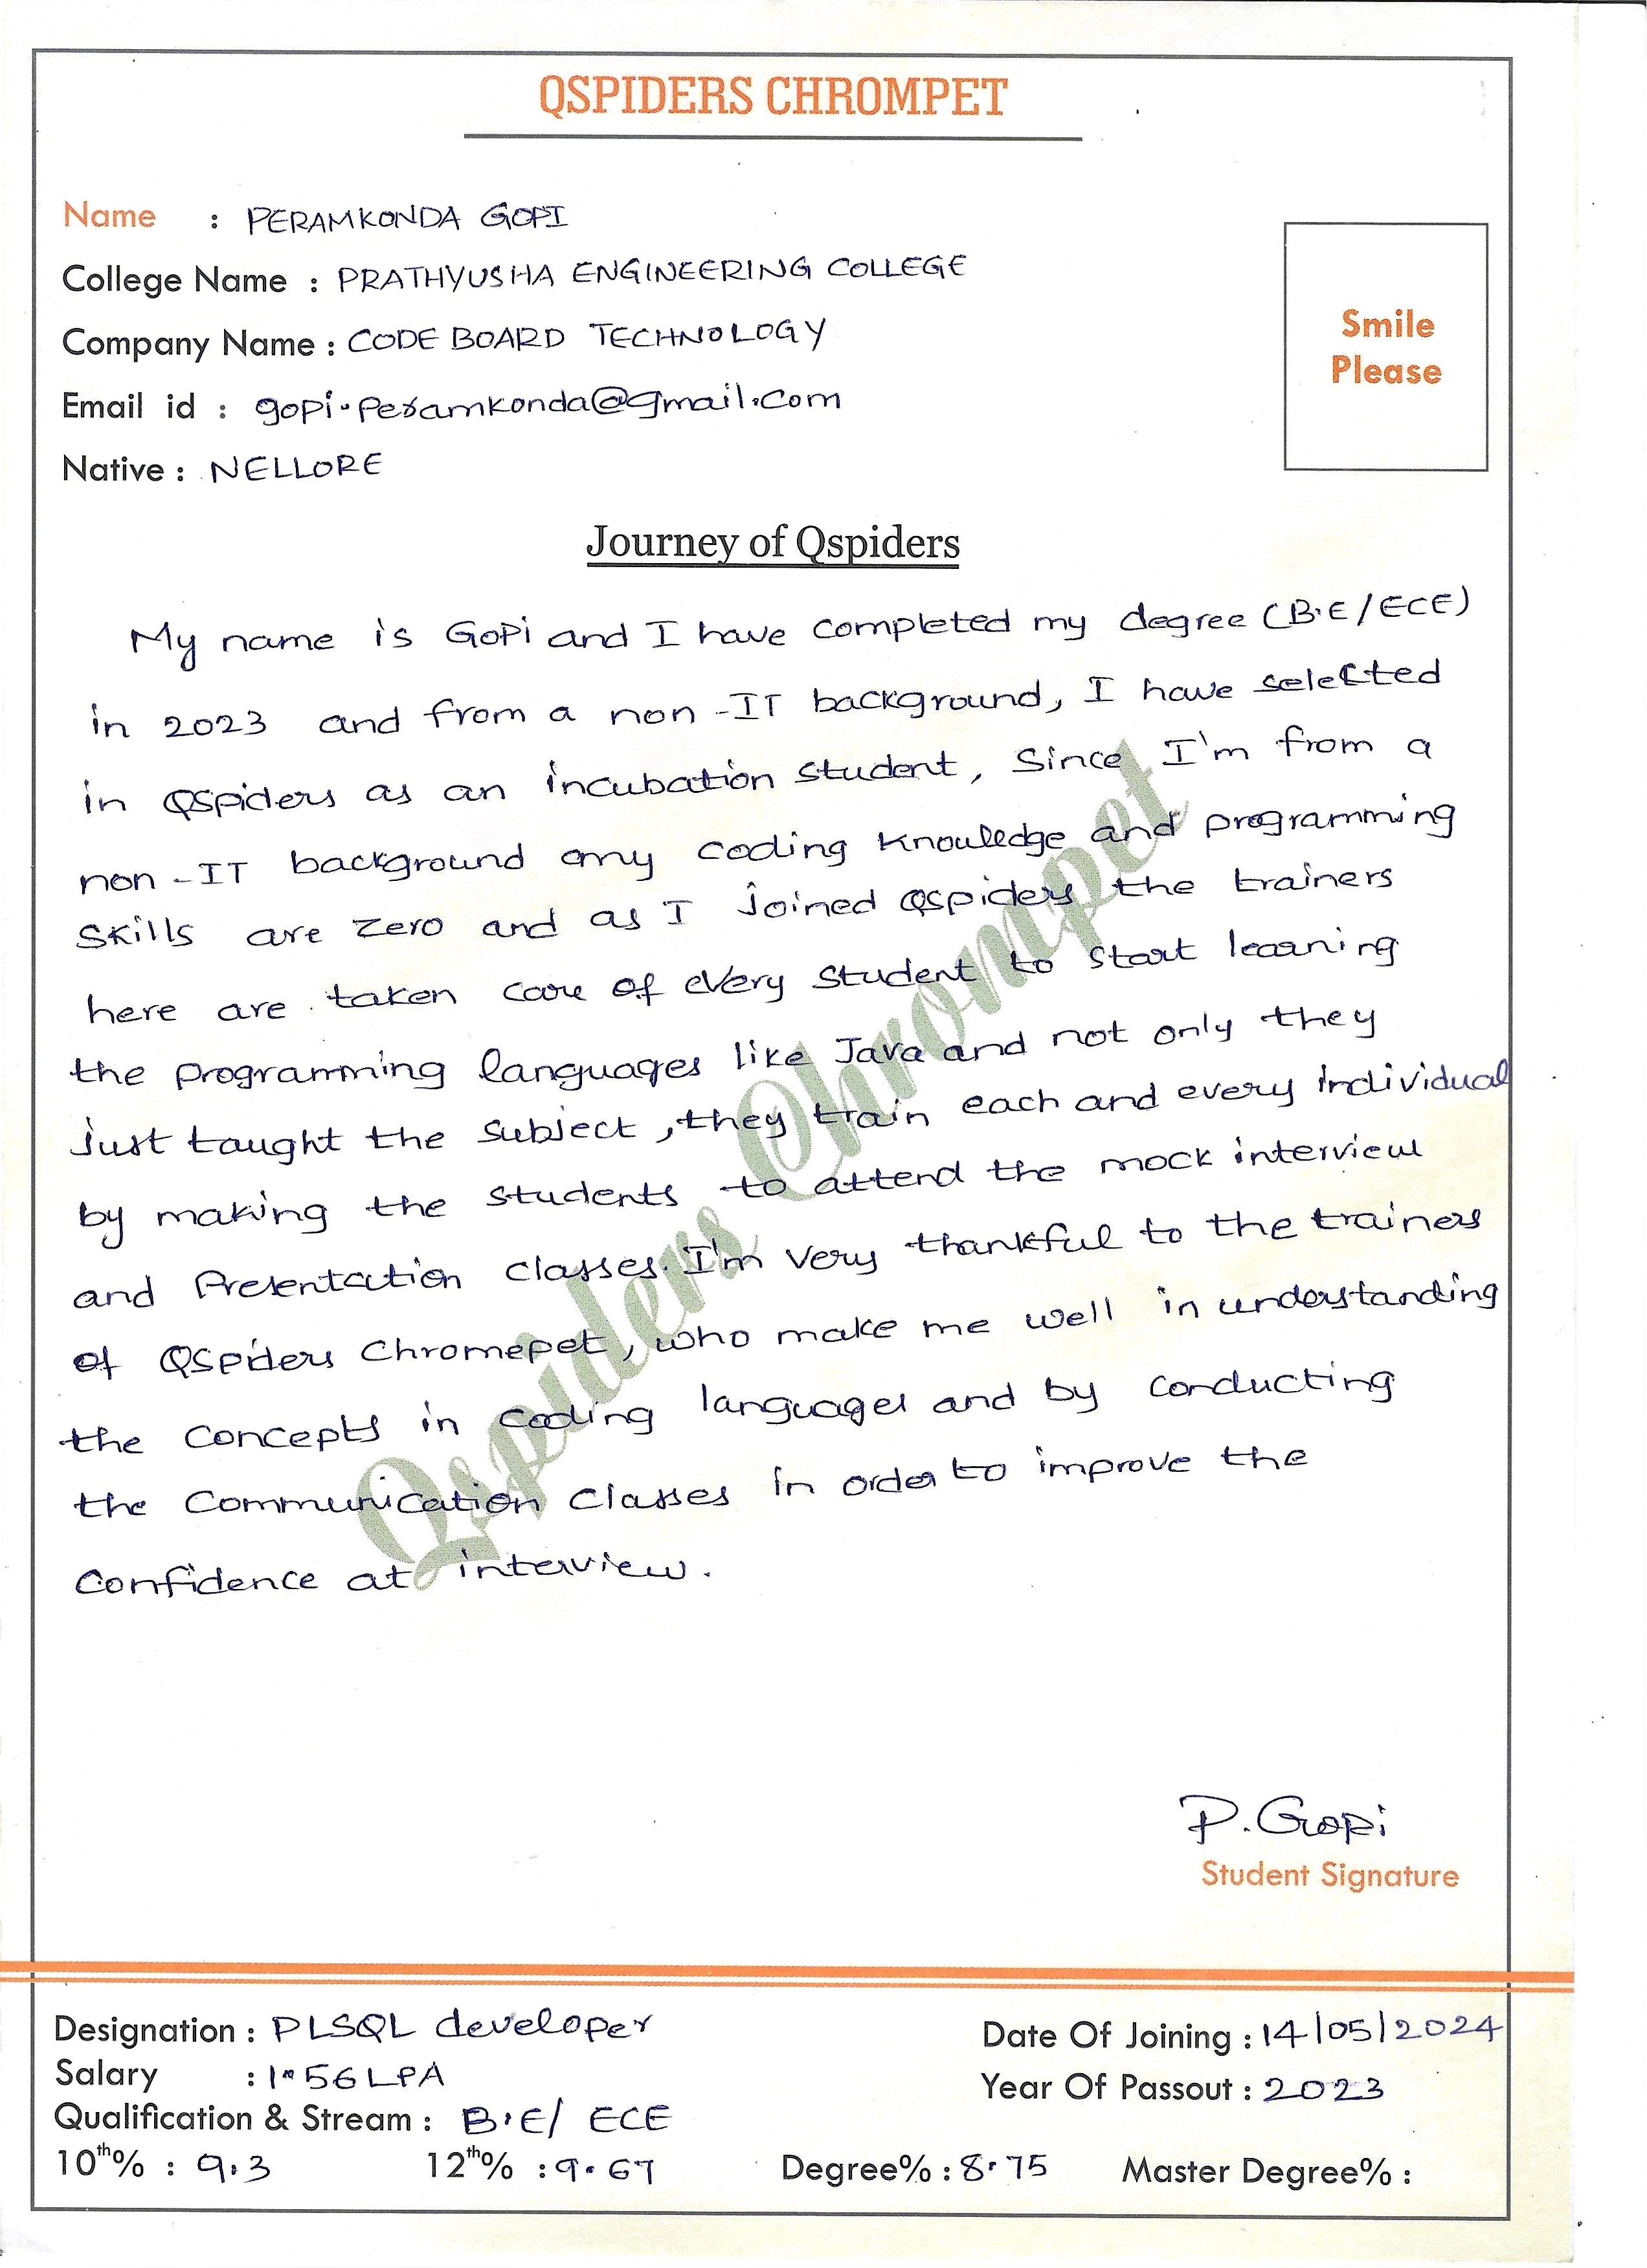 QSPIDERS CHROMPET
Name : PERAMKONDA GOPI
College Name : PRATHYUSHA ENGINEERING COLLEGE
Company Name : CODE BOARD TECHNOLOGY
Email id : gopi.peramkonda@gmail.com
Native : NELLORE
Smile
Please
Journey of Qspiders
My name is Gopi and I have completed my degree (B.E/ECE)
in 2023 and from a non-IT background, I have selected
in QSpiders as an incubation student, Since I'm from a
non-IT background my coding knowledge and programming
skills are zero and as I joined QSpiders the trainers
here are taken care of every student to start learning
the programming languages like Java and not only they
just taught the subject, they train each and every individual
by making the students to attend the mock interview
and Presentation classes. I'm very thankful to the trainers
of QSpiders Chromepet, who make me well in understanding
the concepts in coding languages and by conducting
the communication classes in order to improve the
confidence at interview.
Qspiders Chrompet
P. Gopi
Student Signature
Designation : PLSQL developer
Date Of Joining : 14/05/2024
Salary : 1.56 LPA
Year Of Passout : 2023
Qualification & Stream : B.E/ ECE
10th% : 9.3 12th% : 9.67 Degree% : 8.75 Master Degree% :